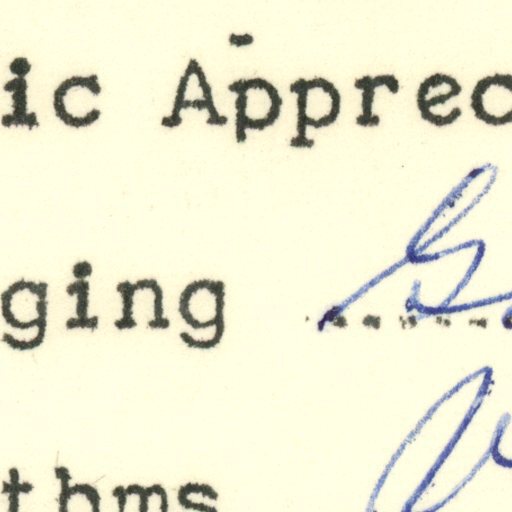 ic Apprec
ging
thms